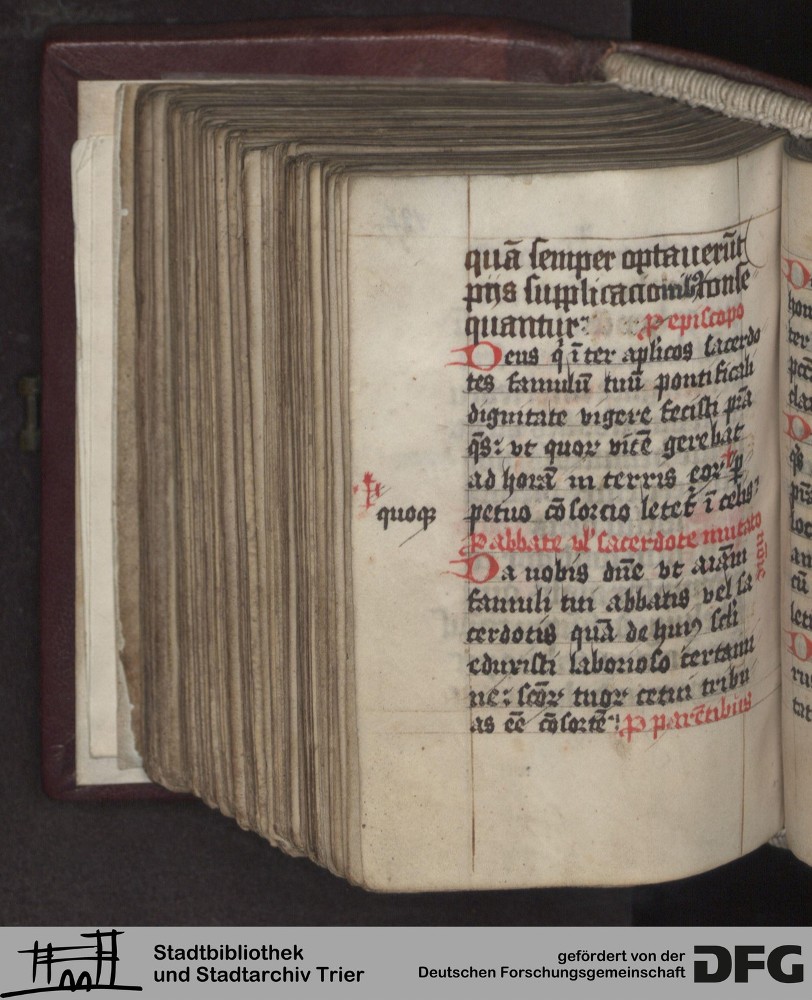 quā semper optauerūt
pijs supplicacionibꝫ conse
quantur: P episcopo
Deus qͥ īter aplicos sacerdo
tes famulū tuū pontificali
dignitate vigere fecisti pͥsta
qs̄: vt quoꝝ vicē gerebat
ad horā in terris eoꝝ ꝓ
quoqꝫ
petuo cōsorcio letet̄ ī celis:
P abbate vl̓ sacerdote mutato
nōie
Da nobis dn̄e vt aīam
famuli tui abbatis vel sa
cerdotis quā de huiꝰ scl̓i
eduxisti laborioso certami
ne: scōꝝ tuoꝝ cetui tribu
as eē cōsortē: P parētibus
Stadtbibliothek
und Stadtarchiv Trier
gefördert von der
Deutschen Forschungsgemeinschaft
DFG